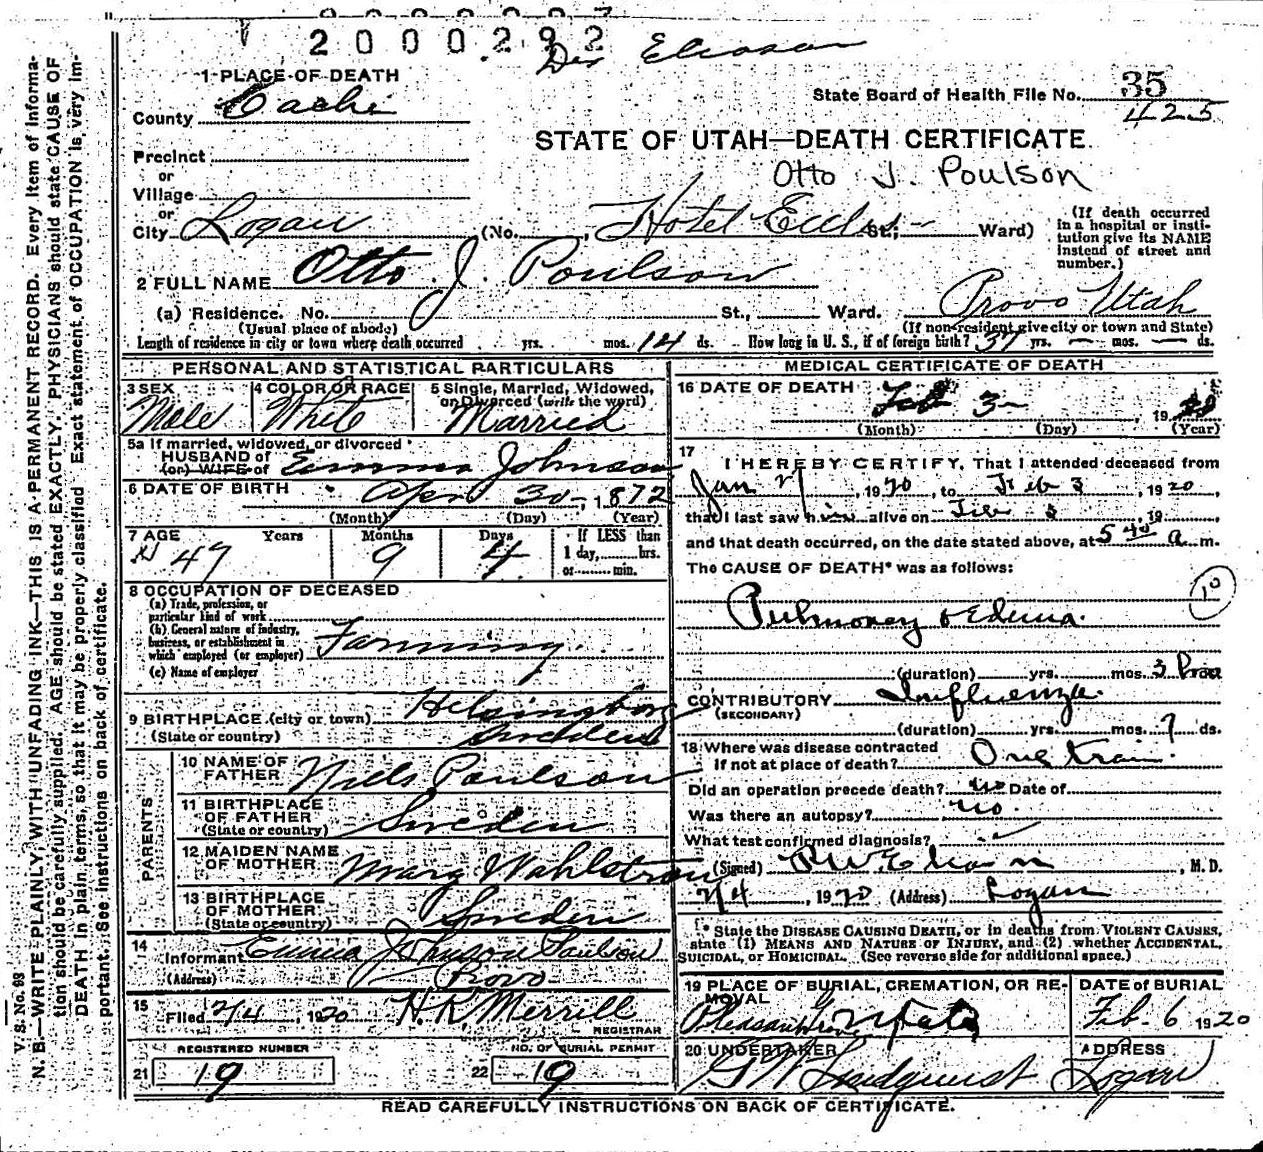 2000292
Dr Eliason
1 PLACE OF DEATH
County Cache
State Board of Health File No. 35
425
STATE OF UTAH—DEATH CERTIFICATE
Otto J. Poulson
Precinct
or
Village
or
City Logan (No. , Hotel Eccles St.; Ward)
(If death occurred
in a hospital or insti-
tution give its NAME
instead of street and
number.)
2 FULL NAME Otto J. Poulson
(a) Residence. No. St., Ward. Provo Utah
(Usual place of abode) (If non-resident give city or town and State)
Length of residence in city or town where death occurred yrs. mos. 14 ds. How long in U. S., if of foreign birth? 37 yrs. — mos. — ds.
PERSONAL AND STATISTICAL PARTICULARS
3 SEX
Male
4 COLOR OR RACE
White
5 Single, Married, Widowed,
or Divorced (write the word)
Married
5a If married, widowed, or divorced
HUSBAND of
(or) WIFE of
Emma Johnson
6 DATE OF BIRTH
Apr 30 - 1872
(Month) (Day) (Year)
7 AGE Years Months Days
47 9 4
If LESS than
1 day, hrs.
or min.
8 OCCUPATION OF DECEASED
(a) Trade, profession, or
particular kind of work
(b) General nature of industry,
business, or establishment in
which employed (or employer) Farming.
(c) Name of employer
9 BIRTHPLACE (city or town) Helsingborg
(State or country) Sweden
PARENTS
10 NAME OF
FATHER Nills Paulson
11 BIRTHPLACE
OF FATHER
(State or country) Sweden
12 MAIDEN NAME
OF MOTHER Mary Wahlstrom
13 BIRTHPLACE
OF MOTHER
(State or country) Sweden
14
Informant Emma Johnson Paulson
(Address) Provo
15
Filed 2/4, 1920 H.K. Merrill
REGISTRAR
REGISTERED NUMBER
21 19
NO. OF BURIAL PERMIT
22 19
MEDICAL CERTIFICATE OF DEATH
16 DATE OF DEATH
Feb 3 - 1920
(Month) (Day) (Year)
17
I HEREBY CERTIFY, That I attended deceased from
Jan 27, 1920, to Feb 3, 1920,
that I last saw him alive on Feb 3, 19
and that death occurred, on the date stated above, at 5 40 a m.
The CAUSE OF DEATH* was as follows:
10
Pulmonary Oedema.
(duration) yrs. mos. 3
CONTRIBUTORY Influenza
(SECONDARY)
(duration) yrs. mos. 7 ds.
18 Where was disease contracted
If not at place of death? On train
Did an operation precede death? no Date of
Was there an autopsy? no.
What test confirmed diagnosis?
(Signed) , M. D.
2/4, 1920 (Address) Logan
* State the DISEASE CAUSING DEATH, or in deaths from VIOLENT CAUSES,
state (1) MEANS AND NATURE OF INJURY, and (2) whether ACCIDENTAL,
SUICIDAL, or HOMICIDAL. (See reverse side for additional space.)
19 PLACE OF BURIAL, CREMATION, OR RE-
MOVAL
Pleasant Grove Utah
DATE of BURIAL
Feb. 6 1920
20 UNDERTAKER
G W Lindquist
ADDRESS
Logan
READ CAREFULLY INSTRUCTIONS ON BACK OF CERTIFICATE.
V. S. No. 93
N. B.—WRITE PLAINLY, WITH UNFADING INK—THIS IS A PERMANENT RECORD. Every item of informa-
tion should be carefully supplied. AGE should be stated EXACTLY. PHYSICIANS should state CAUSE OF
DEATH in plain terms, so that it may be properly classified. Exact statement of OCCUPATION is very im-
portant. See instructions on back of certificate.